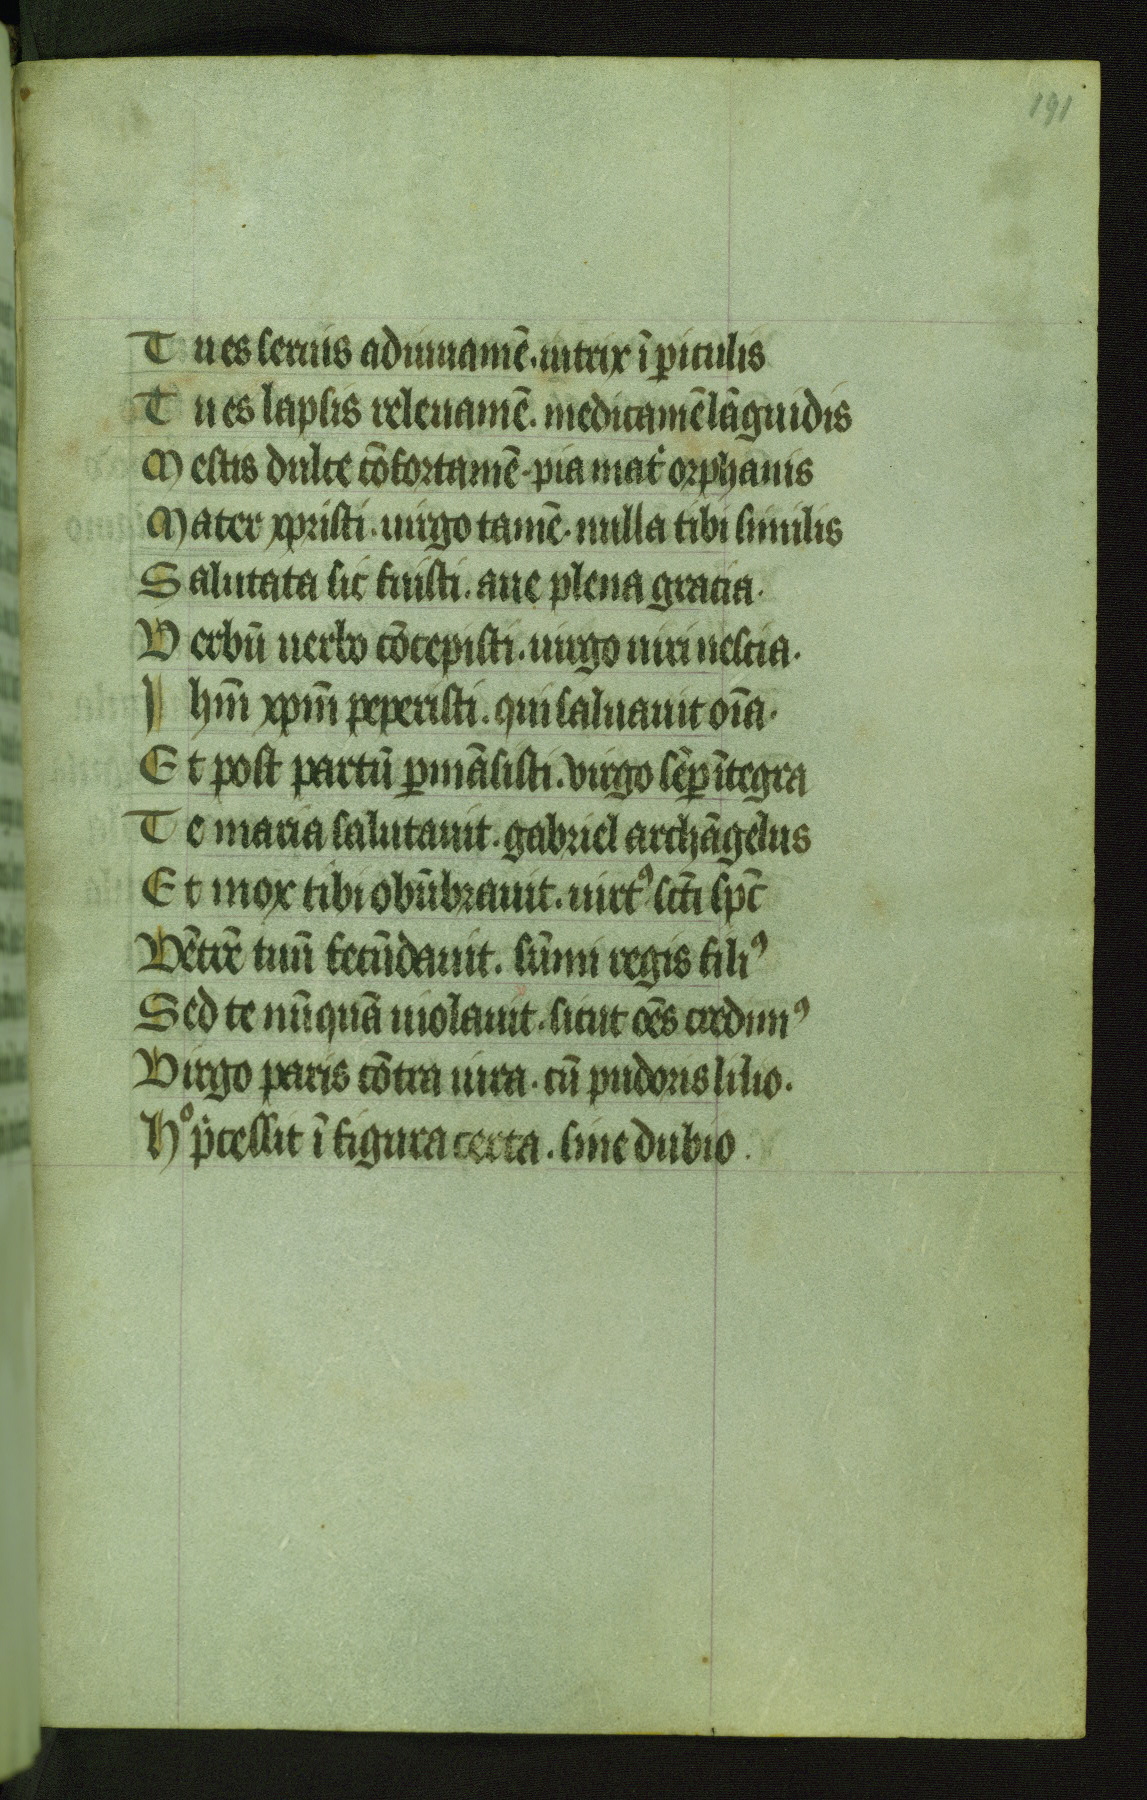 191
Tu es seruis adiuuamē. iutrix ī piculis
Tu es lapsis releuamē. medicamē lāguidis
Mestis dulce cōfortamē. pia mat̉ orphanis
Mater xpristi. uirgo tamē. nulla tibi similis
Salutata sic fuisti. aue plena gracia.
Verbū uerbo cōcepisti. uirgo uiri nescia.
Ihm̄ xpm̄ peperisti. qui saluauit oīa.
Et post partū ꝑmāsisti. virgo sēꝑ ītegra
Te maria salutauit. gabriel archāgelus
Et mox tibi obūbrauit. uirtꝰ sc̄ti sp̄c
Vētrē tuū fecūdauit. sūmi regis filiꝰ
Sed te nūquā uiolauit. sicut oēs credimꝰ
Virgo paris cōtra iura. cū pudoris lilio.
Hº p̄cessit ī figura certa. sine dubio.